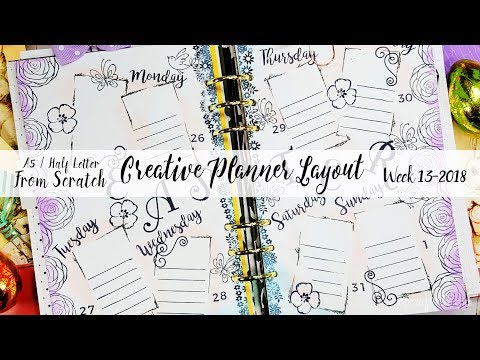 Monday
Thursday
26
29
30
A5 / Half Letter
From Scratch
Creative Planner Layout
Week 13-2018
Tuesday
Wednesday
Saturday
Sunday
27
28
31
1